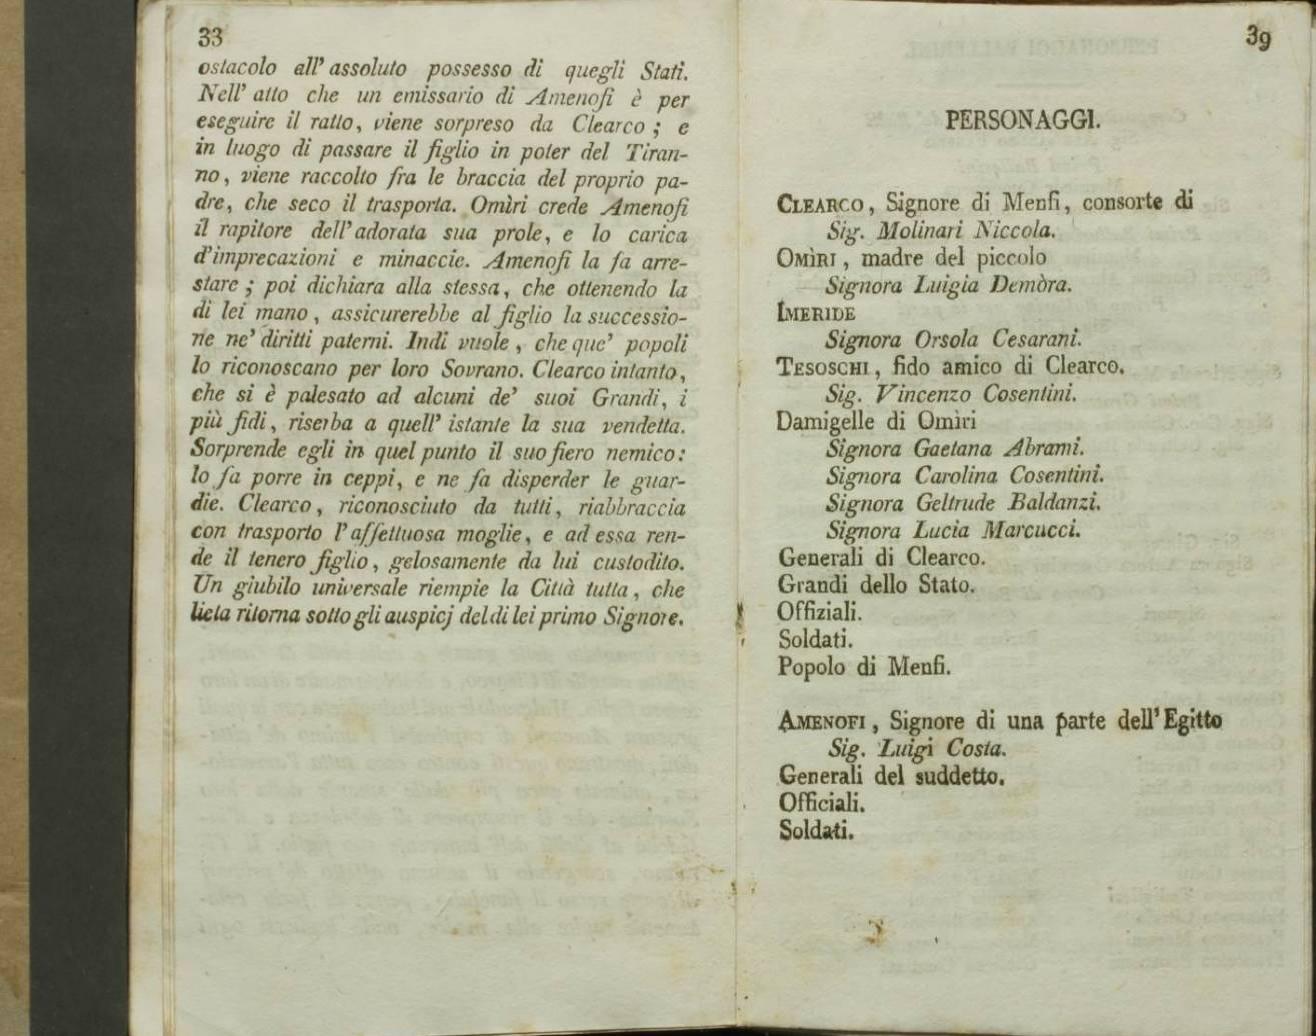 33
ostacolo all' assoluto possesso di quegli Stati.
Nell' atto che un emissario di Amenofi è per
eseguire il ratto, viene sorpreso da Clearco; e
in luogo di passare il figlio in poter del Tiran-
no, viene raccolto fra le braccia del proprio pa-
dre, che seco il trasporta. Omìri crede Amenofi
il rapitore dell' adorata sua prole, e lo carica
d'imprecazioni e minaccie. Amenofi la fa arre-
stare; poi dichiara alla stessa, che ottenendo la
di lei mano, assicurerebbe al figlio la successio-
ne ne' diritti paterni. Indi vuole, che que' popoli
lo riconoscano per loro Sovrano. Clearco intanto,
che si è palesato ad alcuni de' suoi Grandi, i
più fidi, riserba a quell' istante la sua vendetta.
Sorprende egli in quel punto il suo fiero nemico:
lo fa porre in ceppi, e ne fa disperder le guar-
die. Clearco, riconosciuto da tutti, riabbraccia
con trasporto l' affettuosa moglie, e ad essa ren-
de il tenero figlio, gelosamente da lui custodito.
Un giubilo universale riempie la Città tutta, che
lieta ritorna sotto gli auspicj del di lei primo Signore.
39
PERSONAGGI.
CLEARCO, Signore di Menfi, consorte di
Sig. Molinari Niccola.
OMÌRI, madre del piccolo
Signora Luigia Demòra.
IMERIDE
Signora Orsola Cesarani.
TESOSCHI, fido amico di Clearco.
Sig. Vincenzo Cosentini.
Damigelle di Omìri
Signora Gaetana Abrami.
Signora Carolina Cosentini.
Signora Geltrude Baldanzi.
Signora Lucia Marcucci.
Generali di Clearco.
Grandi dello Stato.
Offiziali.
Soldati.
Popolo di Menfi.
AMENOFI, Signore di una parte dell' Egitto
Sig. Luigi Costa.
Generali del suddetto.
Officiali.
Soldati.